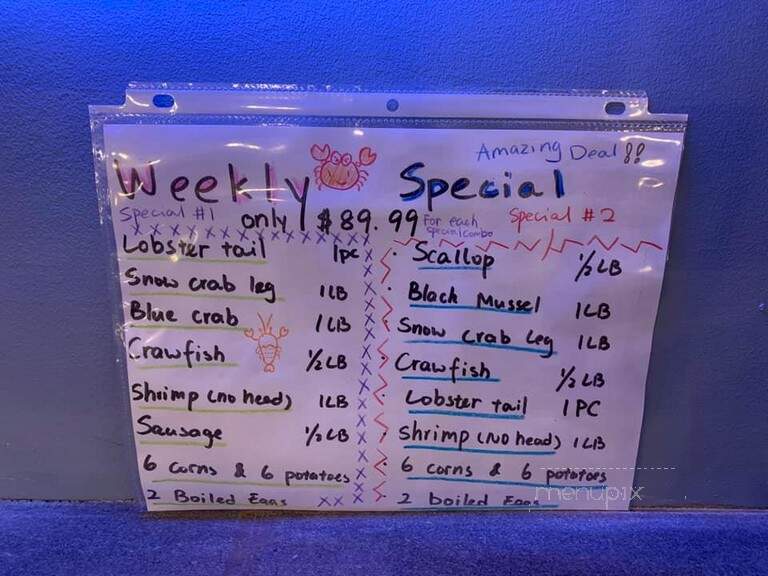 Amazing Deal!!
Weekly Special
Special #1 only $89.99 For each special combo Special #2
Lobster tail 1pc
Snow crab leg 1LB
Blue crab 1LB
Crawfish 1/2 LB
Shrimp (no head) 1LB
Sausage 1/2 LB
6 corns & 6 potatoes
2 Boiled Eggs
Scallop 1/2 LB
Black Mussel 1LB
Snow Crab Leg 1LB
Crawfish 1/2 LB
Lobster tail 1PC
Shrimp (No head) 1LB
6 corns & 6 potatoes
2 boiled Eggs
menupix